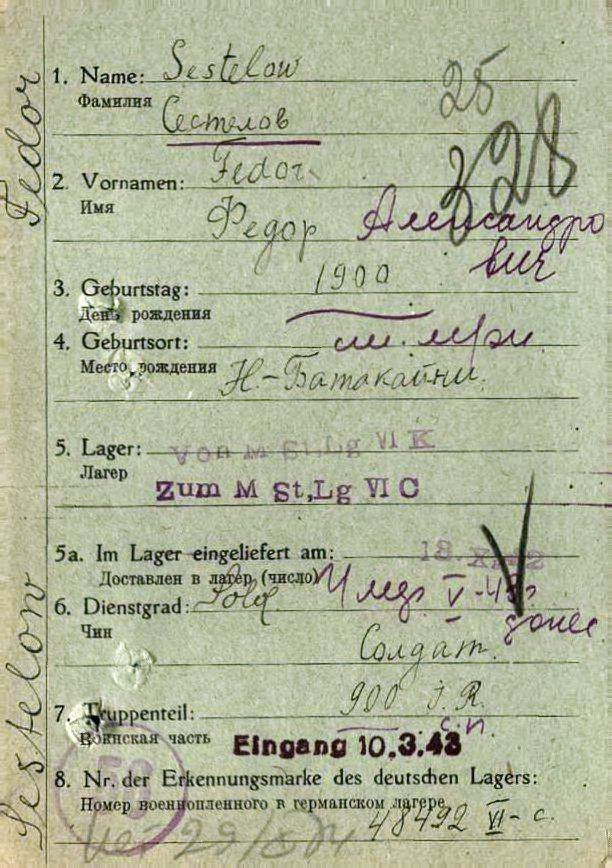 Sestelow Fedor
1. Name: Sestelow
25
Фамилия
Сестелов
328
2. Vornamen: Fedor
Имя
Федор Александро
вич
3. Geburtstag: 1900
День рождения
4. Geburtsort:
Место рождения Н.-Батакайни.
5. Lager: Von M St.Lg VI K
Лагер
Zum M St,Lg VI C
5a. Im Lager eingeliefert am: 18.
Доставлен в лагер (число)
6. Dienstgrad: Sold
Чин
Солдат.
7. Truppenteil: 900 I.R.
с.п.
Воинская часть Eingang 10.3.43
59
8. Nr. der Erkennungsmarke des deutschen Lagers:
Номер военнопленного в германском лагере
48492 VI-c.